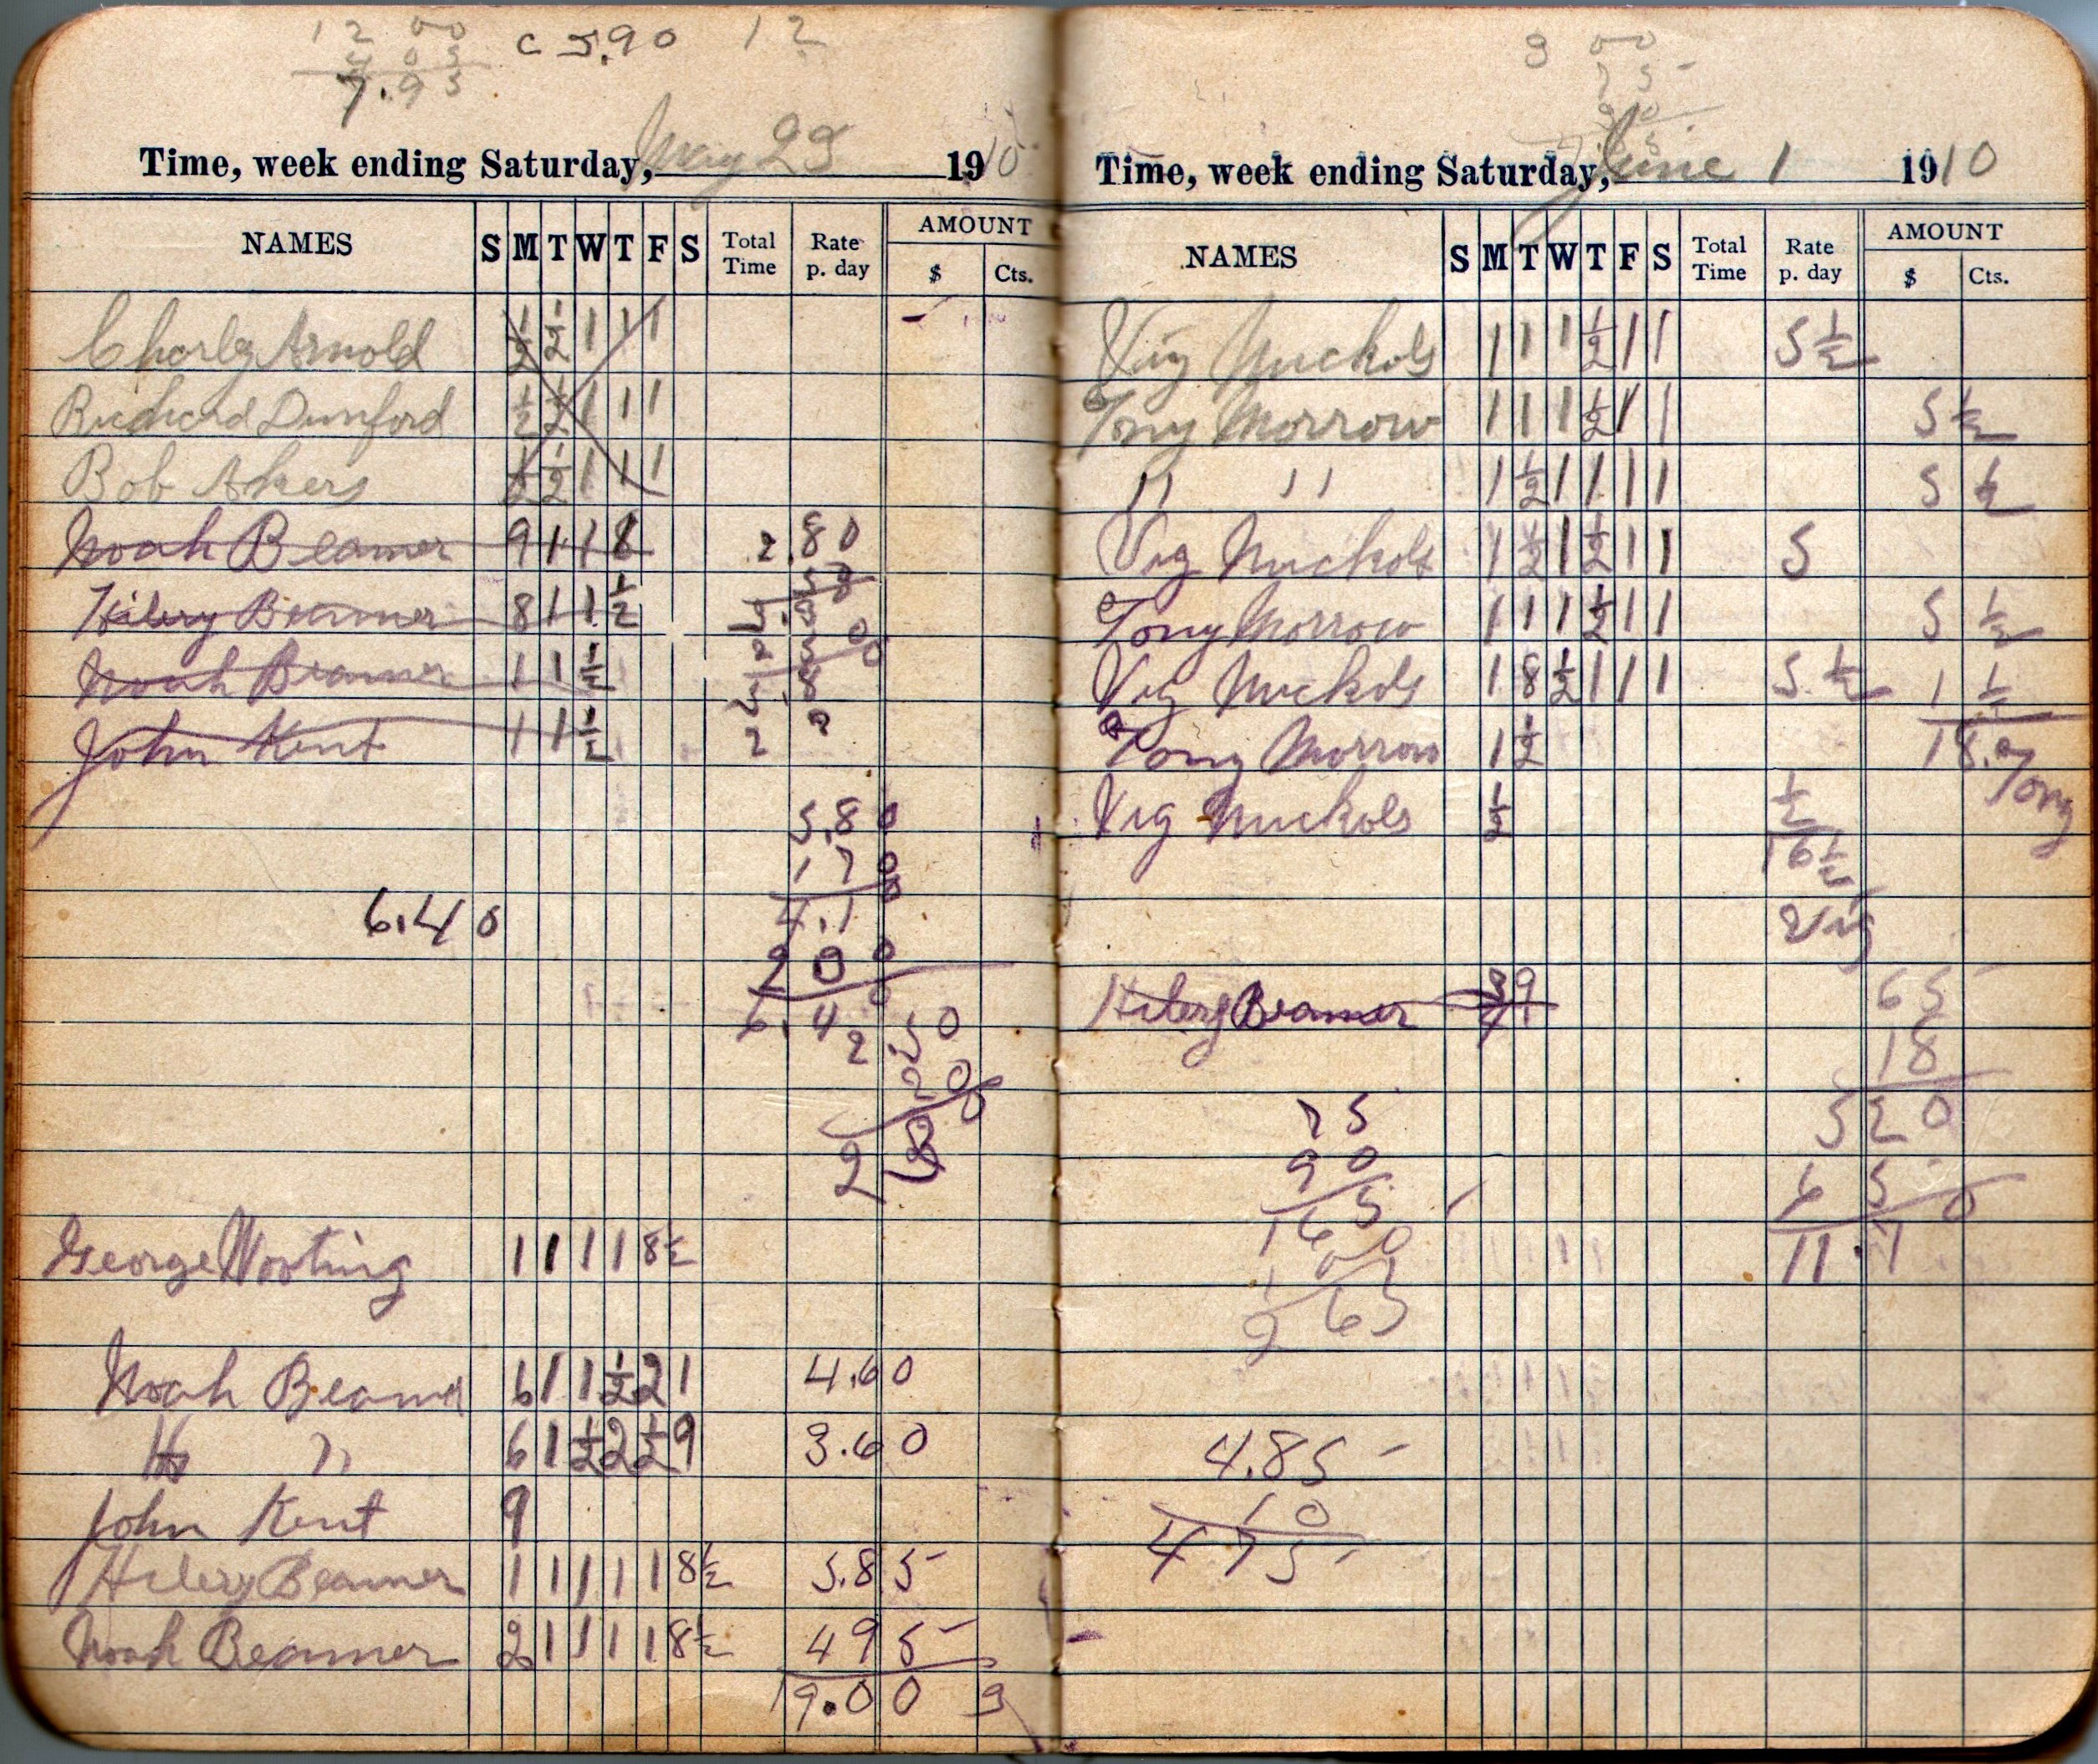 12 00 c 5.90 12
4 05
7.95
Time, week ending Saturday, May 29 1910
NAMES S M T W T F S Total Time Rate p. day AMOUNT $ Cts.
Charley Arnold ½ ½ 1 1 1
Richard Dunford ½ ½ 1 1 1
Bob Akers ½ ½ 1 1 1
Noah Beamer 9 1 1 1 8 2.80
Hilery Beamer 8 1 1 1 ½
Noah Beamer 1 1 ½
John Kent 1 1 ½
5.80
1 7 0
6.40 4.1 0
2 0 0
6.4 0
2.50
20
2 3 0
George Wooting 1 1 1 1 8½
Noah Beamer 6 1 1 ½ 2 1 4.60
H " 6 1 ½ 2 ½ 9 3.60
John Kent 9
Hilery Beamer 1 1 1 1 1 8½ 5.85
Noah Beamer 2 1 1 1 1 8½ 4 95
19.00 9
3 00
75
90
Time, week ending Saturday, June 1 1910
NAMES S M T W T F S Total Time Rate p. day AMOUNT $ Cts.
Vig Nuckols 1 1 1 ½ 1 1 5½
Tony Morrow 1 1 1 ½ 1 1 5½
" " 1 ½ 1 1 1 1 5½
Vig Nuckols 1 ½ 1 ½ 1 1 5
Tony Morrow 1 1 1 ½ 1 1 5½
Vig Nuckols 1 8 ½ 1 1 1 5½ 1½
Tony Morrow 1 ½ 18.0
Tony
Vig Nuckols ½ ½
16½
Vig
Hilery Beamer 9
65
18
75 520
90 65 0
1 65 11.7 0
1 00
2 65
4.85
10
4 75